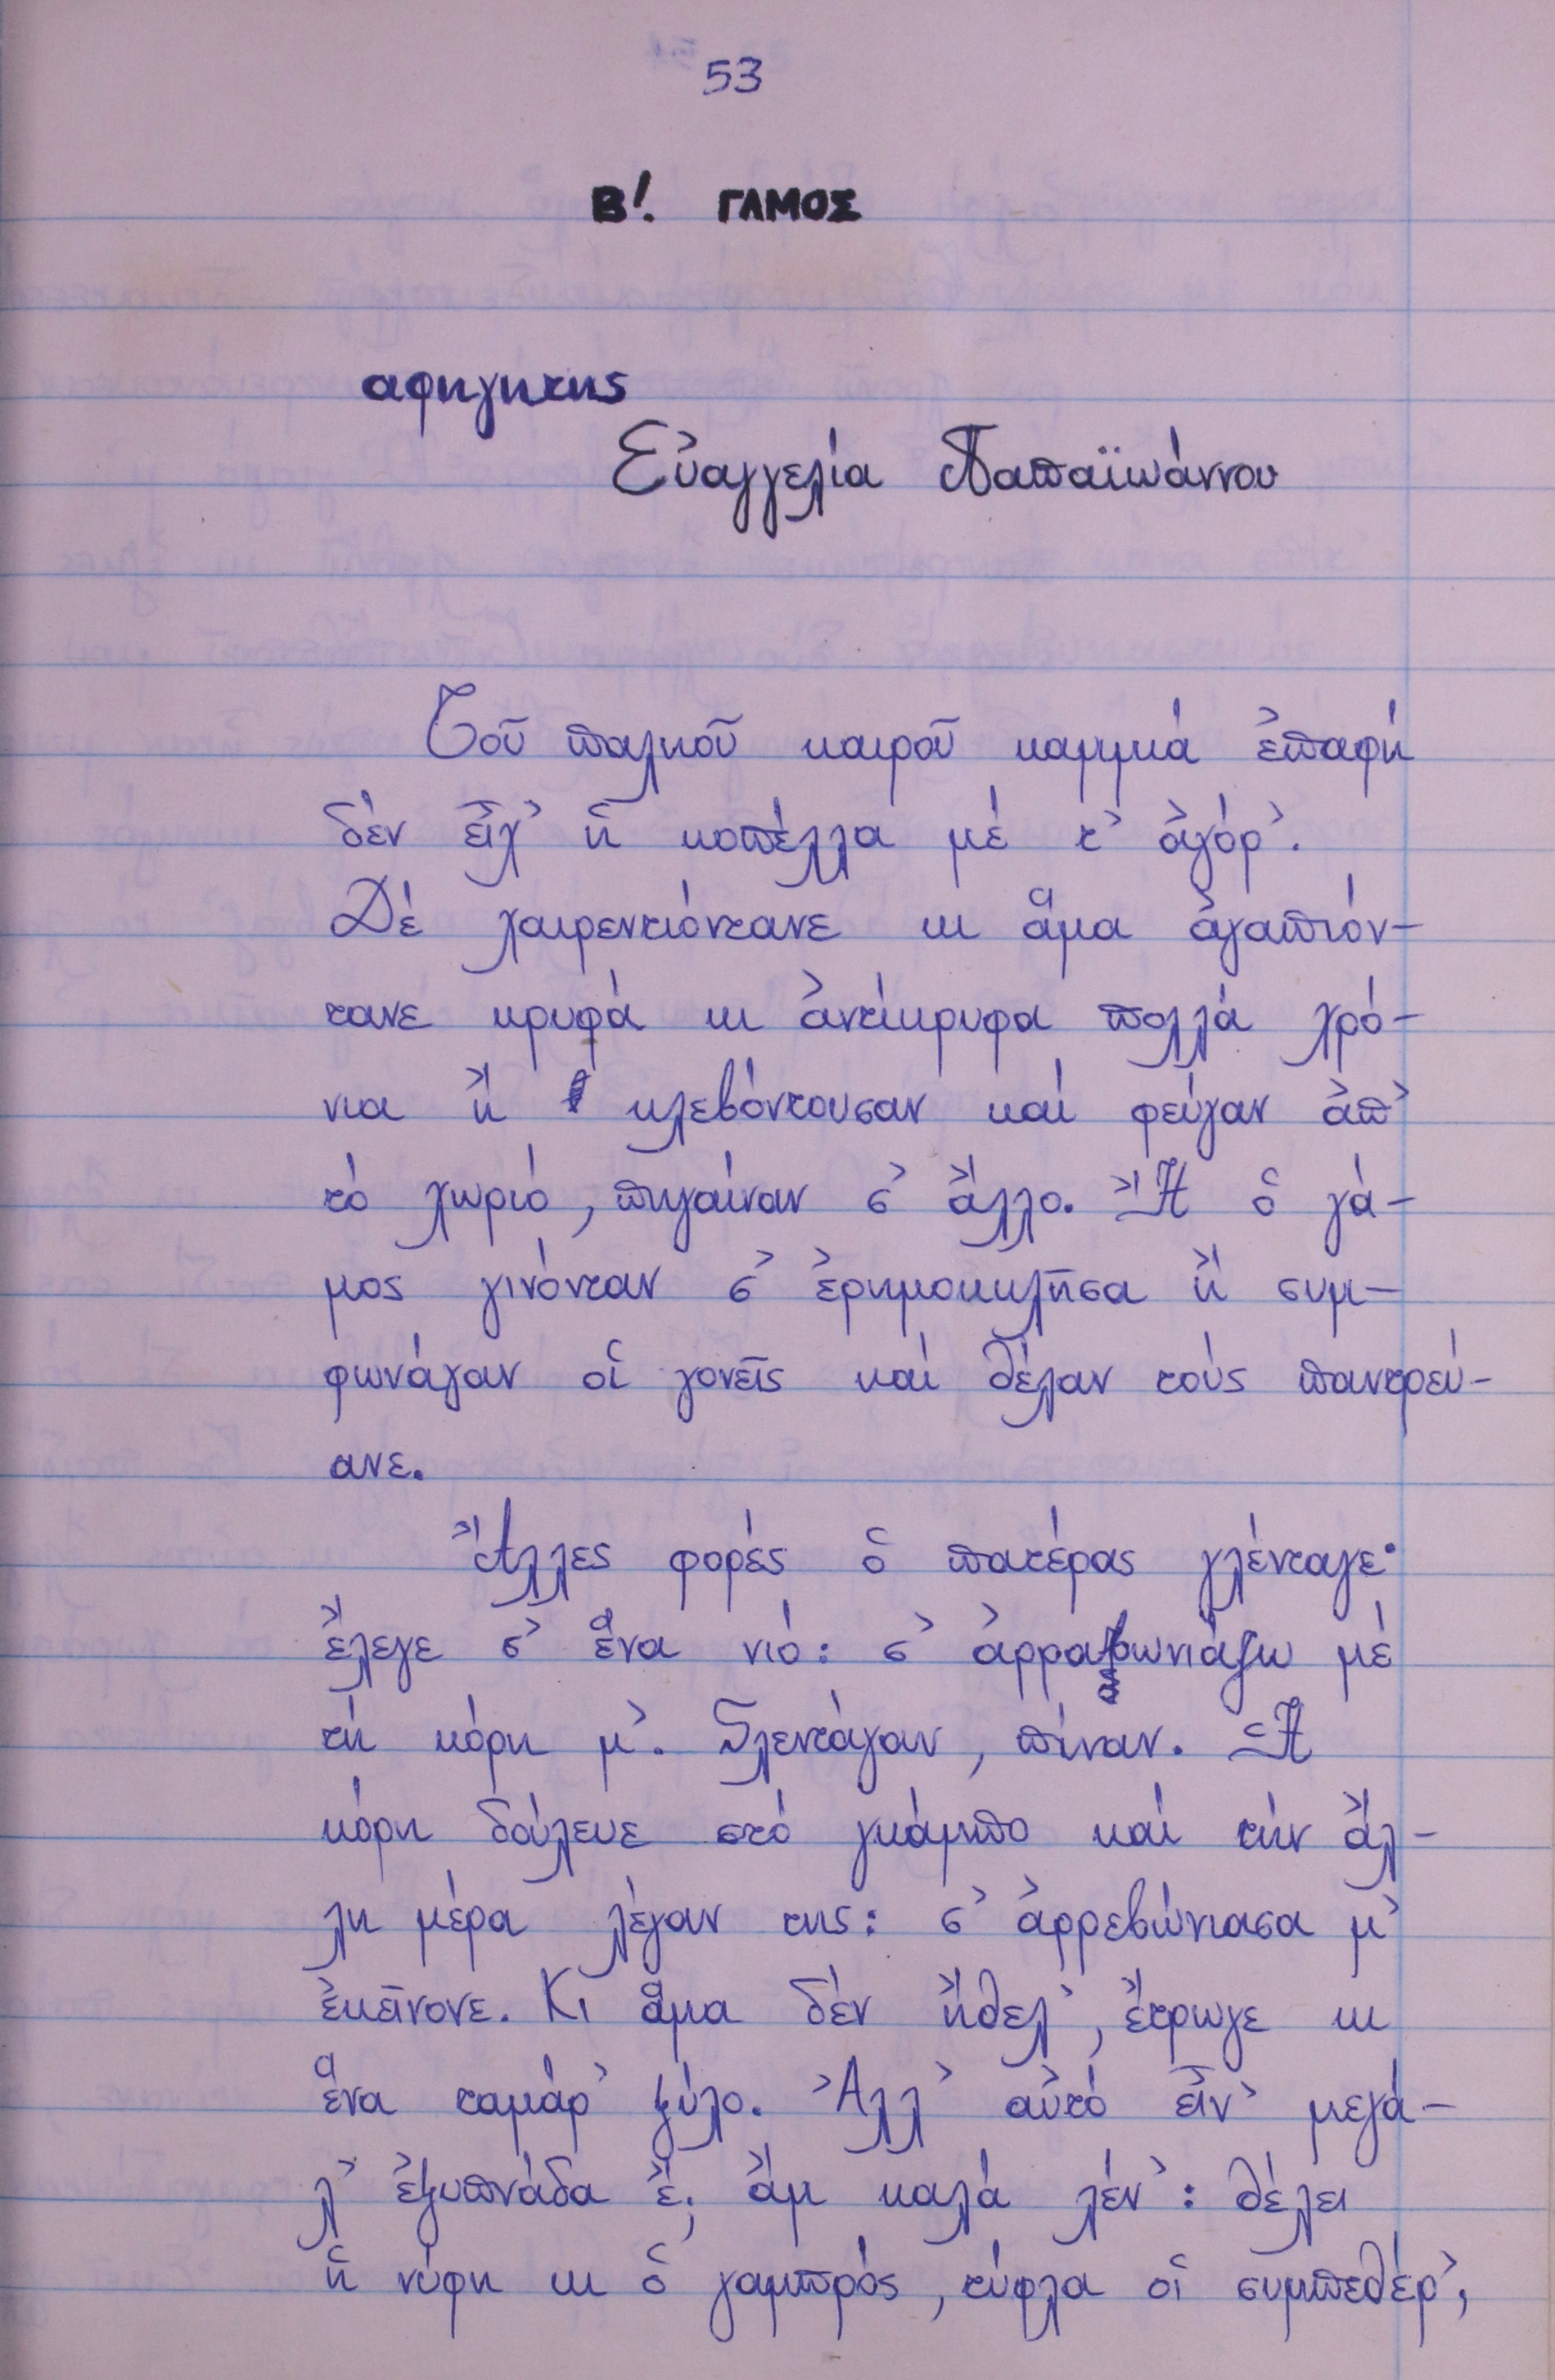 53
Β'. ΓΑΜΟΣ
αφηγητης
Εὐαγγελία Παπαϊωάννου
Τοῦ παλιοῦ καιροῦ καμμιά ἐπαφή
δέν εἶχ' ἡ κοπέλλα μέ τ' ἀγόρ'.
Δέ χαιρεντιόντανε κι ἅμα ἀγαπιόν-
τανε κρυφά κι ἀντίκρυφα πολλά χρό-
νια ἤ κλεβόντουσαν καί φεύγαν ἀπ'
τό χωριό, πηγαίναν σ' ἄλλο. Ἤ ὁ γά-
μος γινόνταν σ' ἐρημοκκλῆσα ἤ συμ-
φωνάγαν οἱ γονεῖς καί θέλαν τούς παντρεύ-
ανε.
Ἄλλες φορές ὁ πατέρας γλένταγε·
ἔλεγε σ' ἕνα νιό: σ' ἀρραβωνιάζω μέ
τή κόρη μ'. Γλεντάγαν, πίναν. Ἡ
κόρη δούλευε στό γκάμπο καί τήν ἄλ-
λη μέρα λέγαν της: σ' ἀρρεβώνιασα μ'
ἐκεῖνονε. Κι ἅμα δέν ἤθελ', ἔτρωγε κι
ἕνα ταμάρ' ξύλο. Ἀλλ' αὐτό εἶν' μεγά-
λ' ἐξυπνάδα ἔ; ἄμ καλά λέν': θέλει
ἡ νύφη κι ὁ γαμπρός, τύφλα οἱ συμπεθέρ',